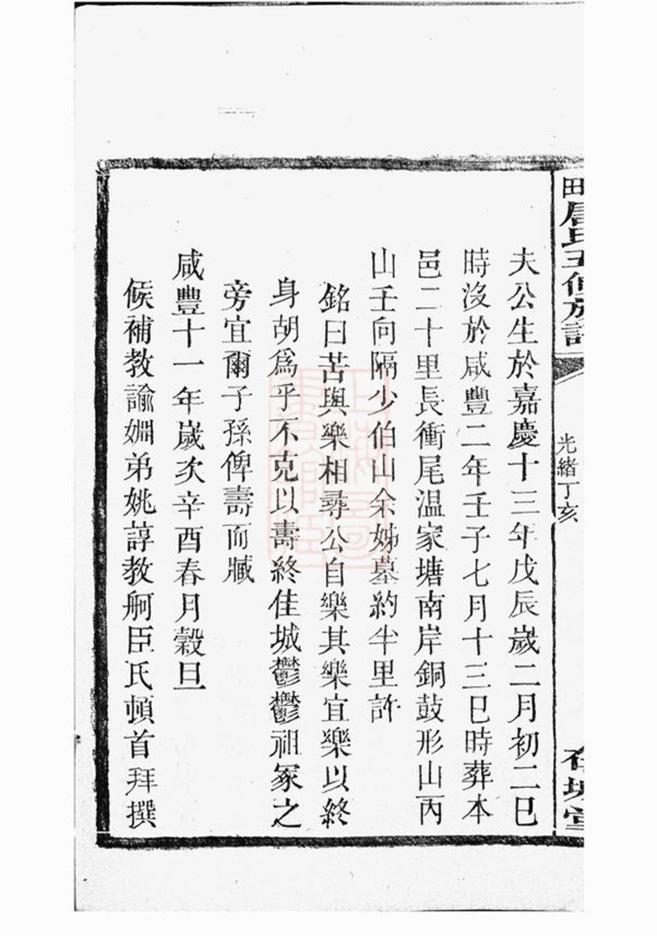 夫公生於嘉慶十三年戊辰歲二月初二巳
時沒於咸豐二年壬子七月十三巳時葬本
邑二十里長衝尾溫家塘南岸銅鼓形山丙
山壬向隔少伯山余姊墓約半里許
銘曰苦與樂相尋公自樂其樂宜樂以終
身胡為乎不克以壽終佳城鬱鬱祖冢之
旁宜爾子孫俾壽而臧
咸豐十一年歲次辛酉春月穀旦
候補教諭姻弟姚諄教舸臣氏頓首拜撰
光緒丁亥